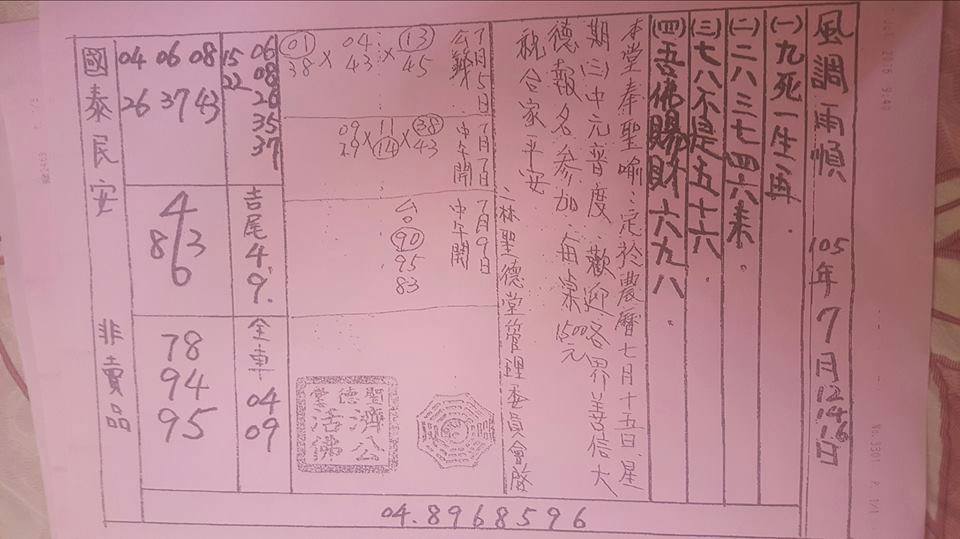 風調雨順 105年7月12.14.16日
(一)九死一生再.
(二)二八三七四六来.
(三)七八不是五十六.
(四)吾佛賜財六九八.
本堂奉聖喻.定於農曆七月十五日.星
期(三)中元普度 歡迎各界善信大
德報名參加.每桌1500元
祝合家平安
林聖德堂管理委員會啟
7月5日
公戰
13 × 04 × 01
45 43 38
7月7日
中午開
38 × 11 × 09
43 14 29
7月9日
中午開
台
90
95
83
聖德堂
濟公
活佛
06 15
08 22
26
35
37
吉尾49.
全車 04
09
04 06 08
26 37 43
4
8 3
6
78
94
95
國泰民安 非賣品
04.8968596